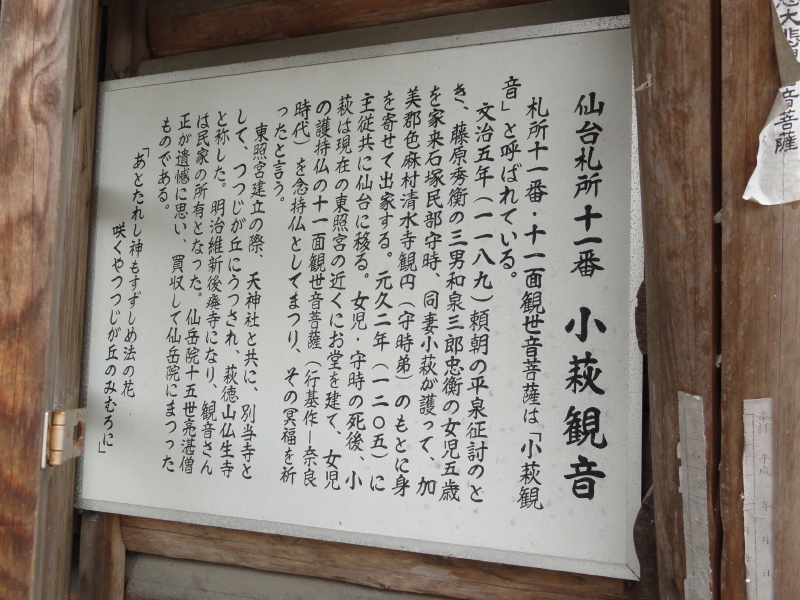 仙台札所十一番　小萩観音
札所十一番・十一面観世音菩薩は「小萩観
音」と呼ばれている。
文治五年（一一八九）頼朝の平泉征討のと
き、藤原秀衡の三男和泉三郎忠衡の女児五歳
を家来石塚民部守時、同妻小萩が護って、加
美郡色麻村清水寺観円（守時弟）のもとに身
を寄せて出家する。元久二年（一二〇五）に
主従共に仙台に移る。女児・守時の死後、小
萩は現在の東照宮の近くにお堂を建て、女児
の護持仏の十一面観世音菩薩（行基作ー奈良
時代）を念持仏としてまつり、その冥福を祈
ったと言う。
東照宮建立の際、天神社と共に、別当寺と
して、つつじが丘にうつされ、萩徳山仏生寺
と称した。明治維新後廃寺になり、観音さん
は民家の所有となった。仙岳院十五世亮湛僧
正が遺憾に思い、買収して仙岳院にまつった
ものである。
「あとたれし神もすずしめ法の花
咲くやつつじが丘のみむろに」
大悲
音菩薩
平成　年　月　日